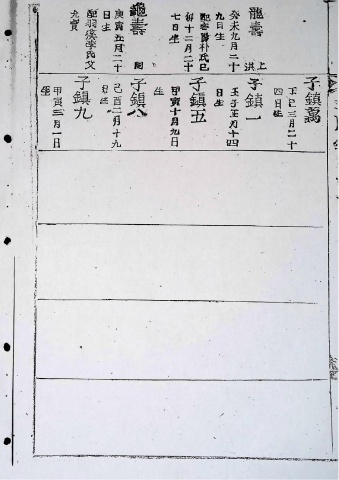 龍壽
癸未九月二十
九日生
配密陽朴氏己
卯十二月二十
七日生
上
洪
龜壽
庚寅五月二十
日生
配羽溪李氏父
光贊
子鎮萬
丁巳三月二十
四日生
子鎮一
壬子五月十四
日生
子鎮五
甲寅十月九日
生
子鎮八
己酉二月十九
日生
子鎮九
甲寅三月一日
生